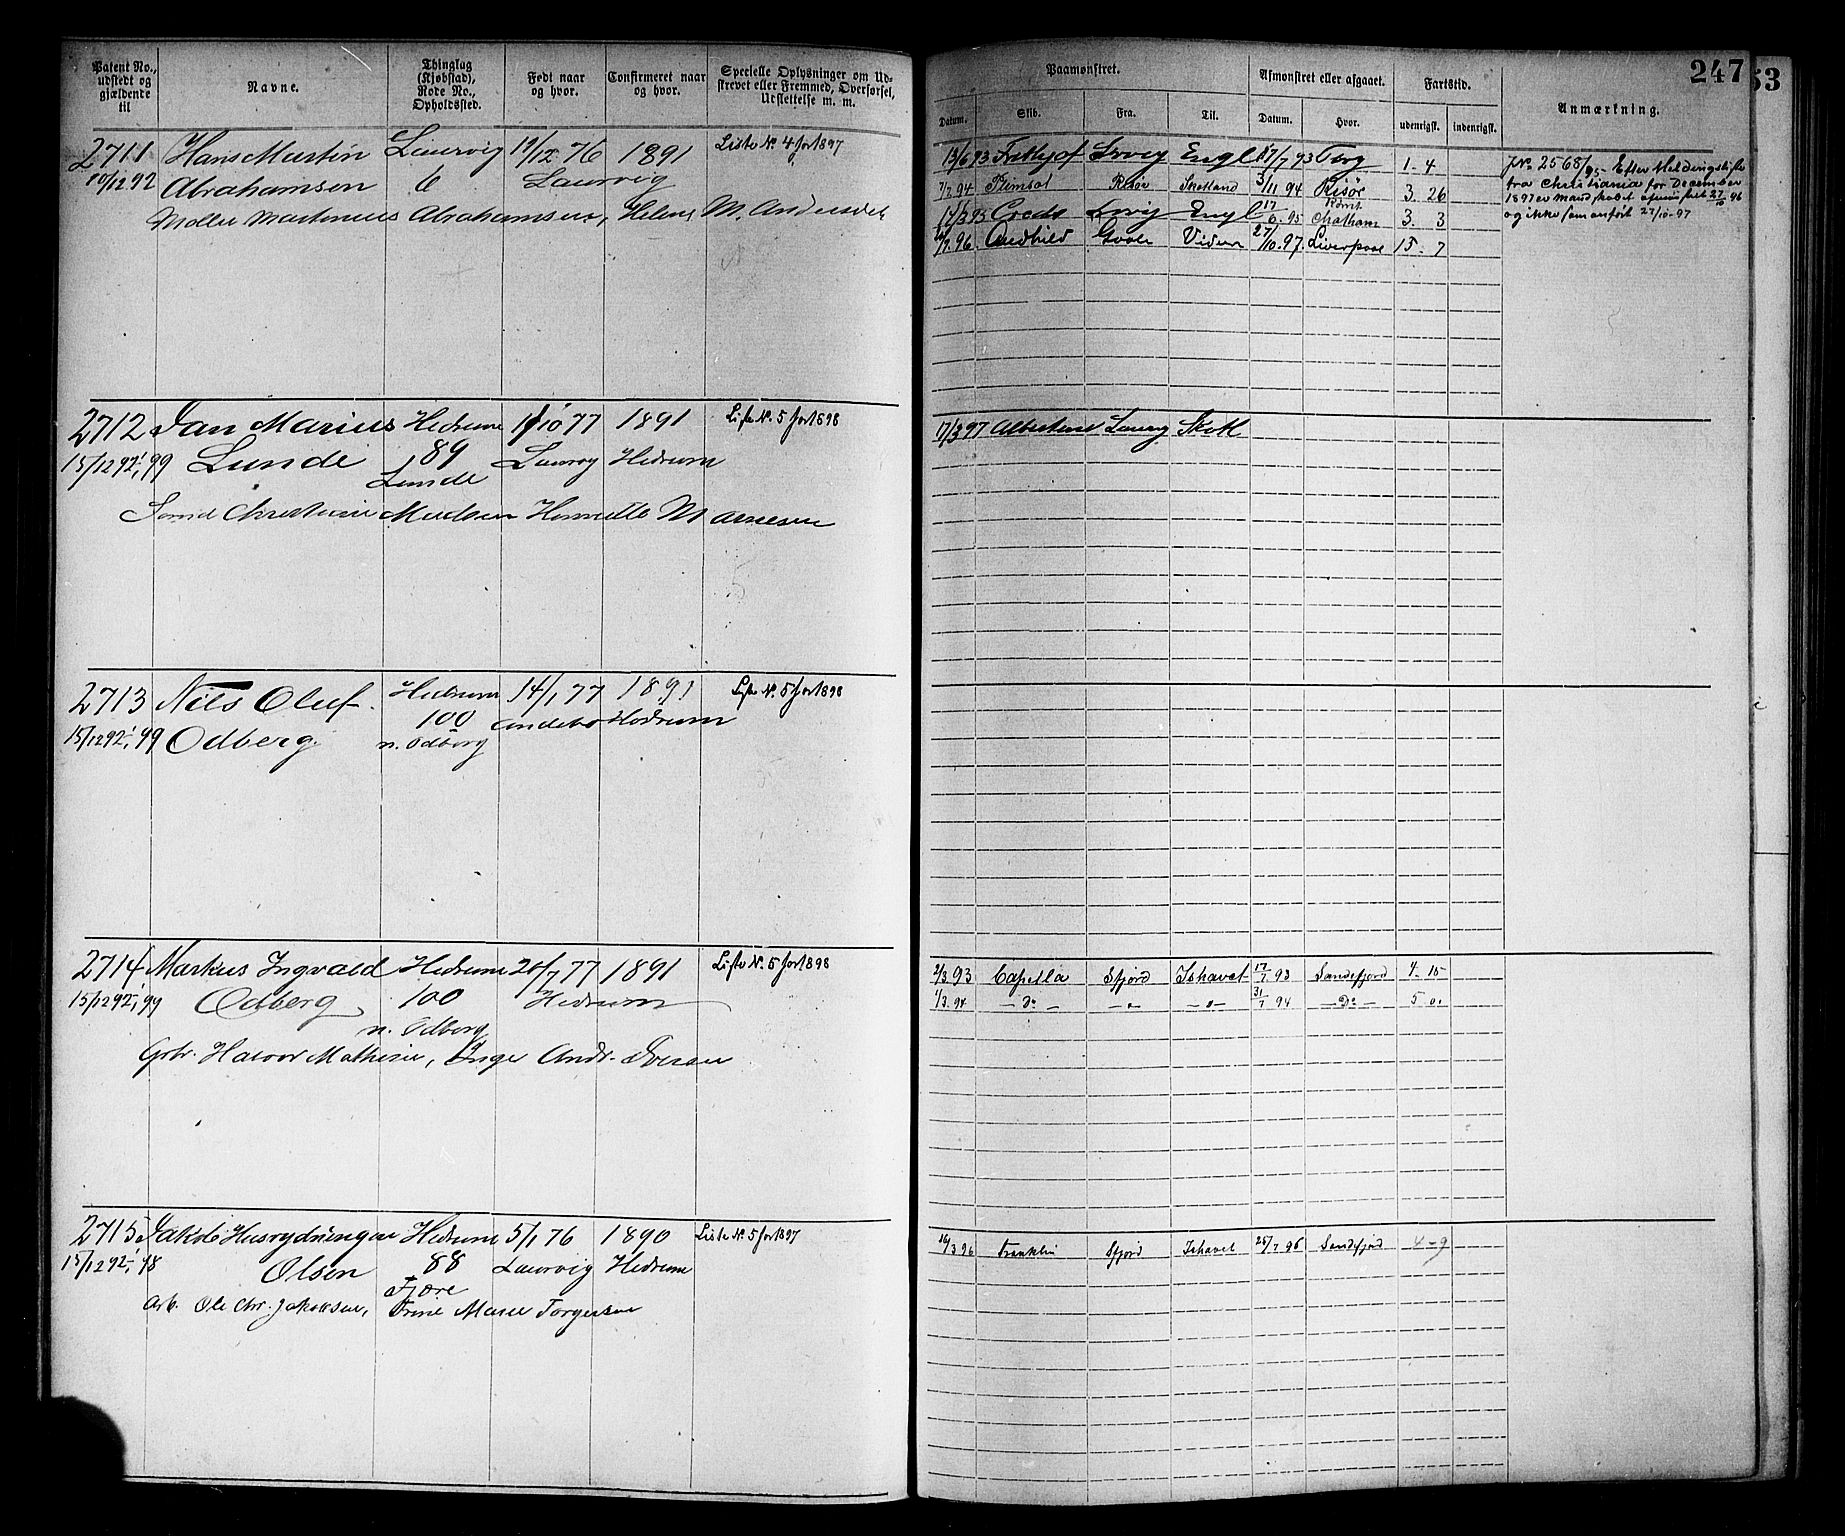 Patent No., udstedt og gjældende til
Navne.
Thinglag (Kjøbstad), Rode No., Opholdssted.
Født naar og hvor.
Confirmeret naar og hvor.
Specielle Oplysninger om Udstrevet eller Fremmed, Overførsel, Udslettelse m. m.
2711 Hans Martin Laurvig 19/12 76 1891 Liste No. 4 for 1897
10/12 92 Abrahamsen 6 Laurvig
Martinius Abrahamsen, Helene M. Andersdt.
2712 Jan Marius Hedrum 77 1891 Liste No. 5 for 1898
15/12 92, 99 Lunde 89 Laurvig Hedrum
Lunde
Christian Madsen
2713 Nils Oluf Hedrum 14/1 77 1891 Liste No. 5 for 1898
15/12 92, 99 Odberg 100 Andebo Hedrum
n. Odberg
2714 Markus Ingvald Hedrum 77 1891 Liste No. 5 for 1898
15/12 92, 99 Odberg 100 Hedrum
n. Odberg
Halvor Mathisen, Inge Andr. Iversen
2715 Jakob Husrydningen Hedrum 5/1 76 1890 Liste No. 5 for 1897
15/12 92, 98 Olsen 88 Laurvig Hedrum
Arb. Ole Chr. Jakobsen, Trine Marie Torgersen
247
53
Paamønstret.
Afmønstret eller afgaaet.
Fartstid.
Anmærkning.
Datum. Skib. Fra. Til. Datum. Hvor. udenrigsk. indenrigsk.
13/6 93 Frithjof Lrvig Engl 17/7 93 Torg 1. 4
7/2 94 Plimsol Risør Skotland 3/11 94 Risør 3. 26
17/3 95 Credo Lrvig Engl 17/6. 95 Chatham 3. 3
96. Goole 27/10. 97. Liverpool 15. 7
J No 2568/95 - Efter
fra Christiania for December
1897 er mandskabet 27/10 96
og ikke som anført 27/10-97
17/3 97 Albertine Laurv Skotl
2/3 93 Capella Sfjord Ishavet 17/7 93 Sandefjord 4. 15
1/3. 94 — Do — — " — — " — 31/7 94 — Do — 5 0.
16/3 96 Franklin Sfjord Ishavet 25/7 96 Sandefjord 4-9